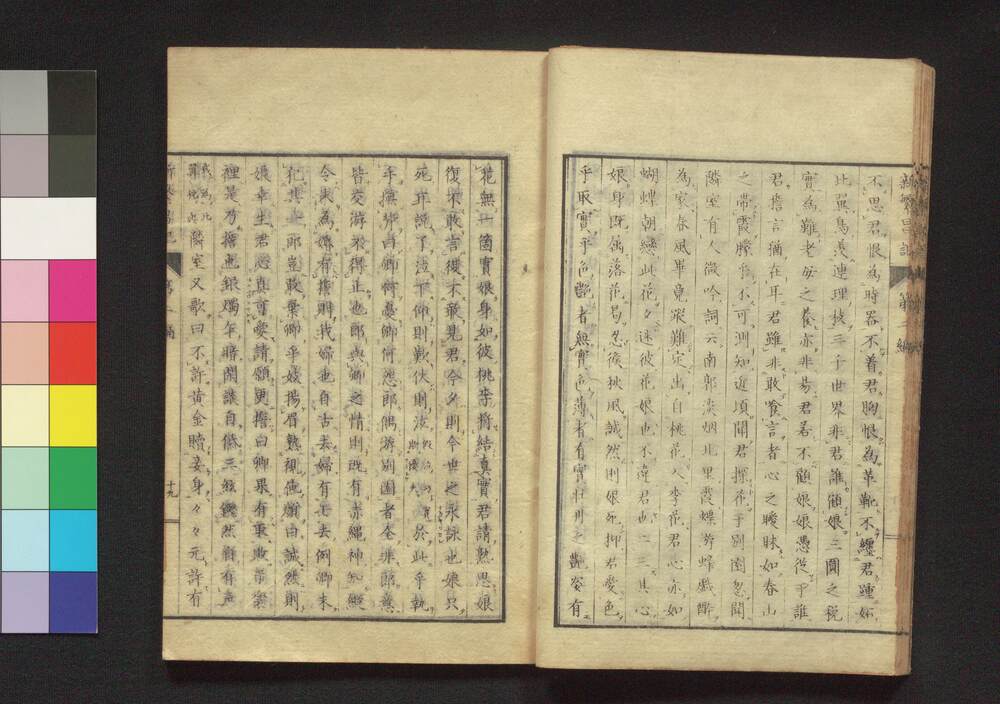 不思君恨為時器不着君胸恨為革靴不纏君踵妬
比翼鳥羨連理枝三千世界非君誰顧娘三圓之税
實為難老母之養亦非易君若不顧娘娘憑從乎誰
君擔言猶在耳君雖非敢食言者心之曖昧如春山
之帶霞朦乎不可測知近頃聞君探花于別園忽聞
隣室有人微吟詞云南郭淡烟北里霞蝶舞蜂戯醉
為家春風畢竟蹤難定出自桃花入李花君心亦如
蝴蝶朝戀此花夕迷彼花娘也不違君也二三其心
娘身既倣落花易忍後秋風誠然則娘死抑君愛色
乎取實乎色艷者無實色薄者有實牡丹之艷姿有
花無一箇實娘身如彼桃李將結真實君請熟思娘
復不敢言復不敢見君今夕則今世之永訣也娘只
死耳説了泣下仰則歎伏則泣 於此乎執
手撫郷曰卿何憂卿何怨郎偶游別園者全非郎意
皆交游來得止也郎與卿之情則既有赤縄神知證
今夫為嬪有擔則我婦也自古去婦有七去例卿未
犯其一郎豈敢棄卿乎妓揚眉熟視他顔曰誠然則
娘幸生君心真可愛請願更擔曰卿果有
裡是乃擔也銀燭乍暗閑譲自低三絃 然有聲
隣室又歌曰不許黄金贖妾身々々元許有
十九